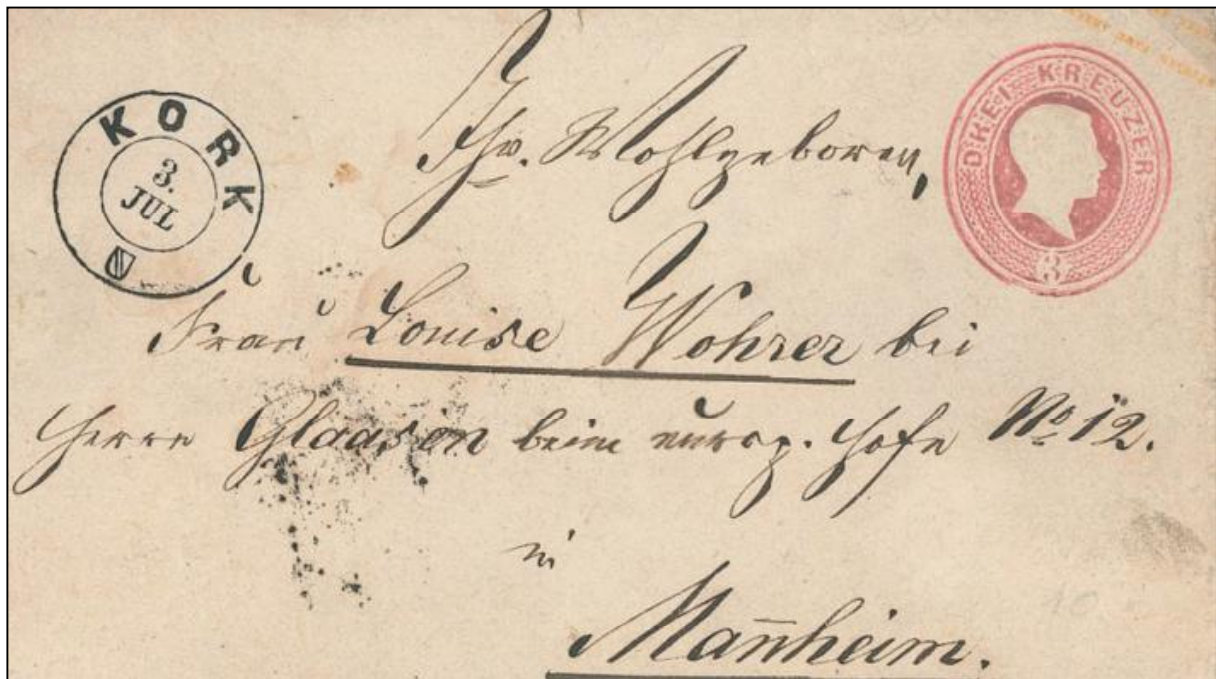 KORK
3.
JUL
DREI KREUZER
3
Ihr. Wohlgeboren,
Frau Louise Wohrer bei
Herrn Glaason beim europ. Hofe No 12.
in
Mañheim.